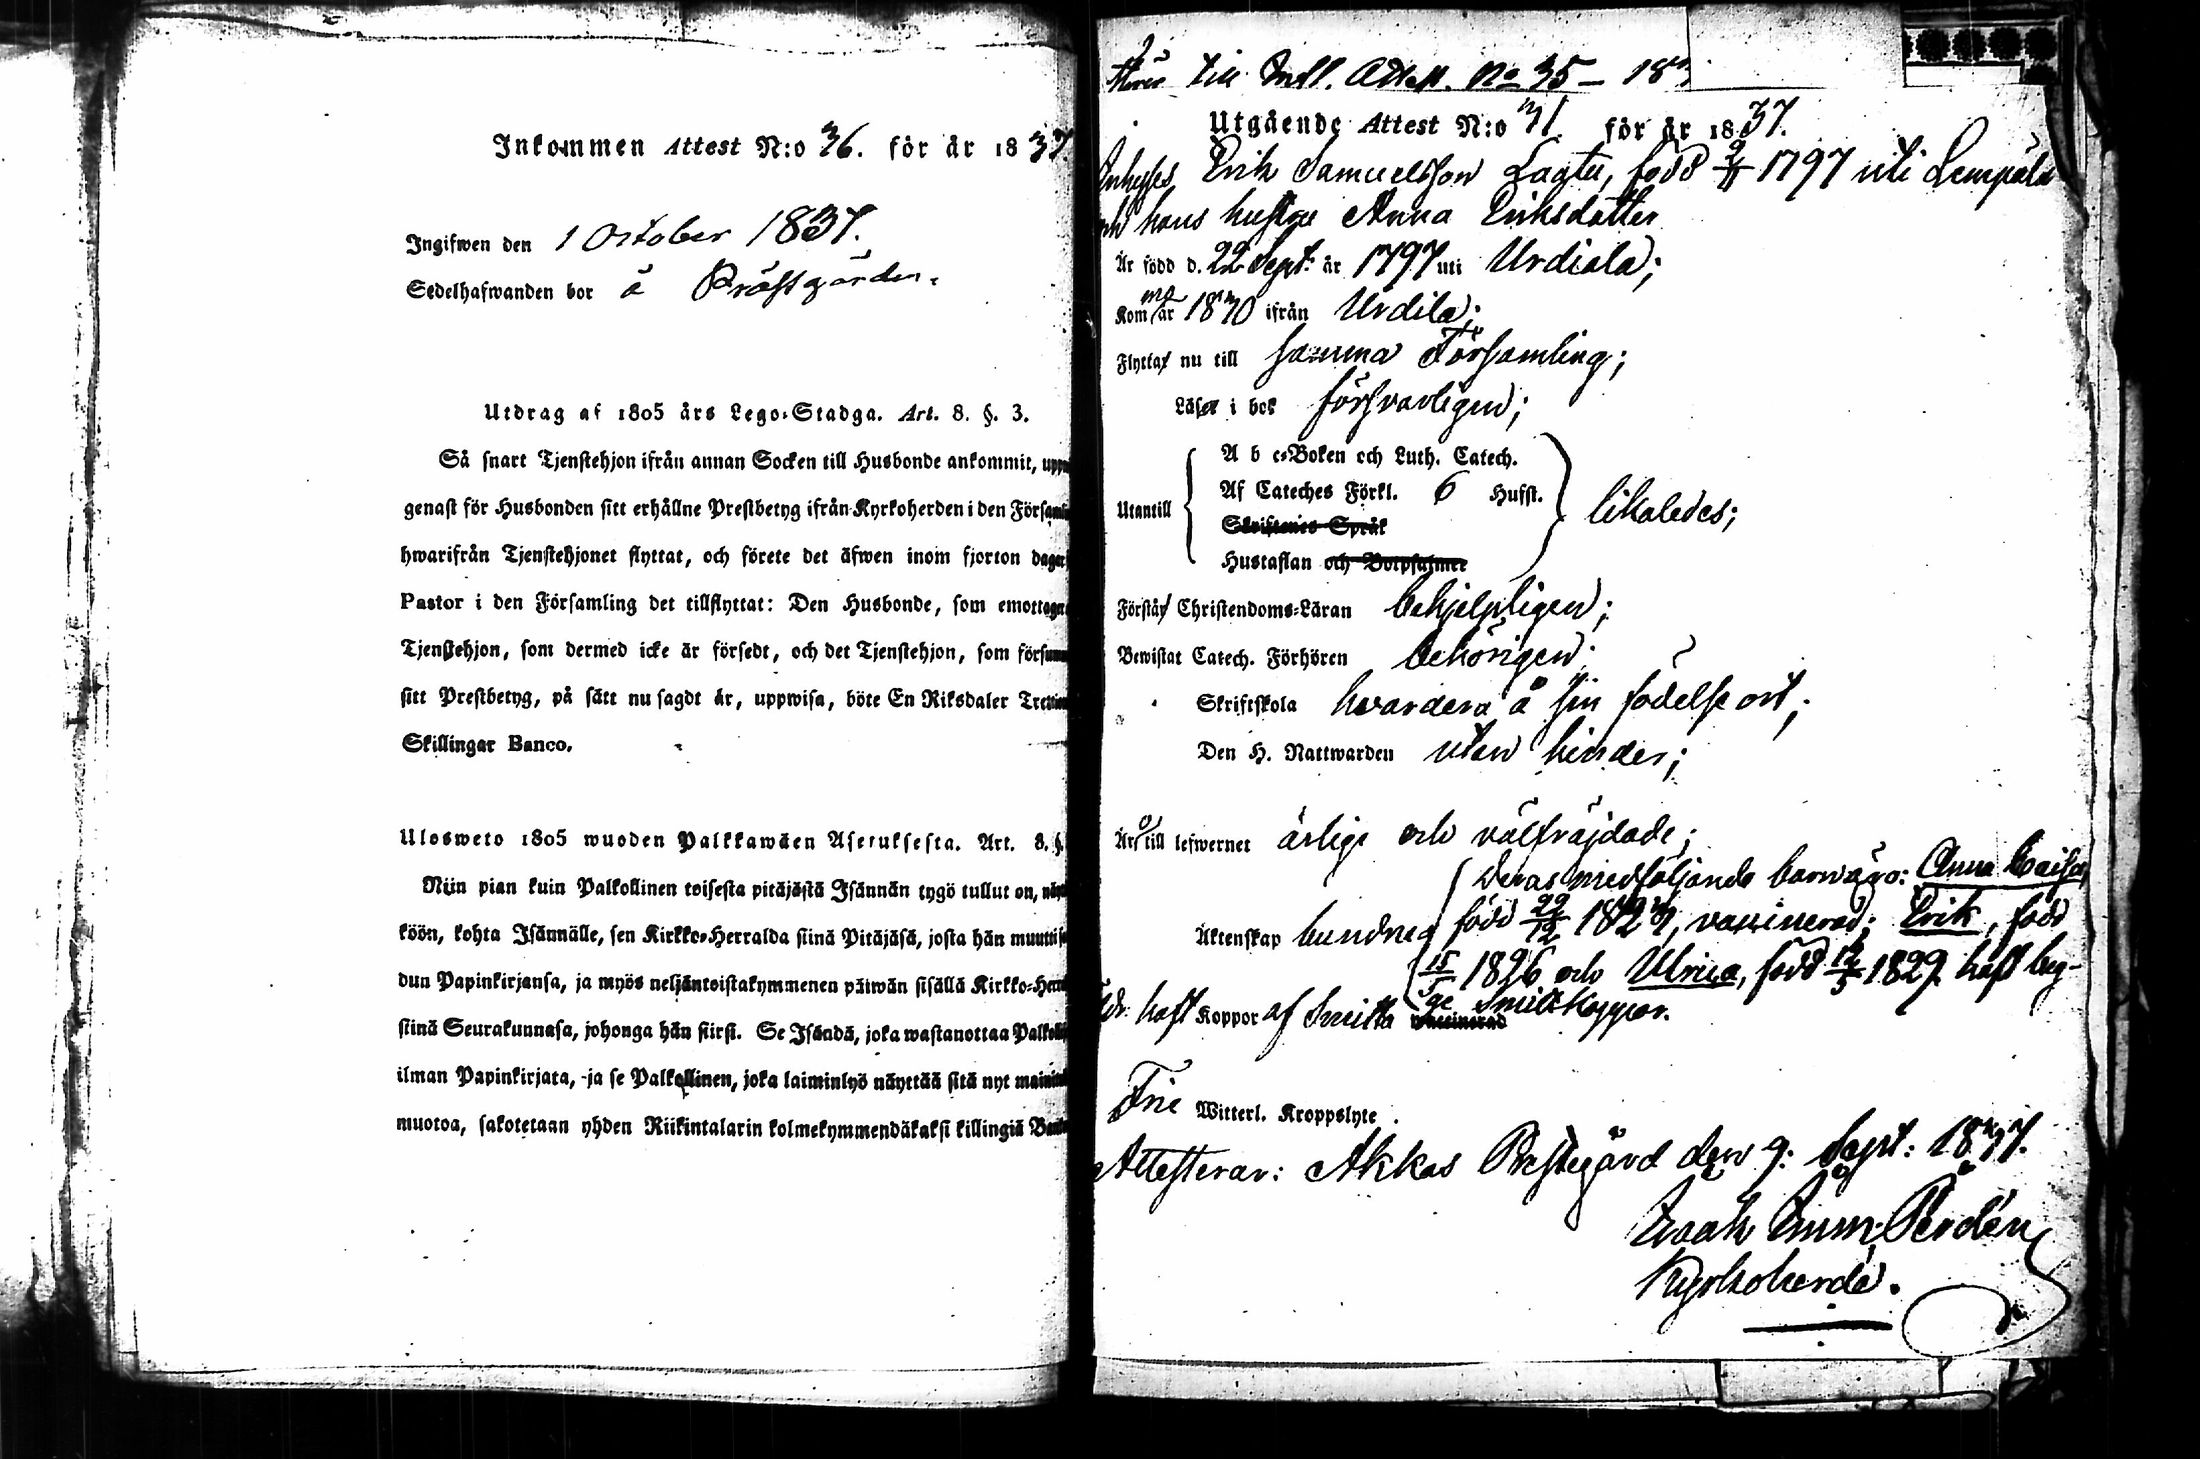 Inkommen Attest N:o 36. för år 1837.
Ingifwen den 1 October 1837.
Sedelhafwanden bor å Prästgården.
Utdrag af 1805 års Lego-Stadga. Art. 8. §. 3.
Så snart Tjenstehjon ifrån annan Socken till Husbonde ankommit,
genast för Husbonden sitt erhållne Prestbetyg ifrån Kyrkoherden i den
hwarifrån Tjenstehjonet flyttat, och förete det äfwen inom fjorton dagar
Pastor i den Församling det tillflyttat: Den Husbonde, som
Tjenstehjon, som dermed icke är försedt, och det Tjenstehjon, som
sitt Prestbetyg, på sätt nu sagdt är, uppwisa, böte En Riksdaler
Skillingar Banco.
Ulosweto 1805 wuoden Palkkawäen Asetuksesta. Art. 8. §.
Niin pian kuin Palkollinen toisesta pitäjästä Isännän tygö tullut on,
köön, kohta Isännälle, sen Kirkko-Herralda siinä Pitäjäsä, josta hän
dun Papinkirjansa, ja myös neljäntoistakymmenen päiwän sisällä
siinä Seurakunnasa, johonga hän siirsi. Se Isändä, joka wastanottaa
ilman Papinkirjata, ja se Palkollinen, joka laiminlyö näyttää sitä nyt
muotoa, sakotetaan yhden Riikintalarin kolmekymmendäkaksi killingiä
till Attest. No 35 – 18
Utgående Attest N:o 31 för år 1837.
Erik Samuelsson Lagtu, född 9/11 1797 uti Lempälä
och hans hustru Anna Eriksdotter
Är född d. 22 Sept: år 1797 uti Urdiala;
Kommo år 1830 ifrån Urdila;
Flytta nu till samma Församling;
Läsa i bok försvarligen;
Utantill
A b c-Boken och Luth. Catech.
Af Cateches Förkl. 6 Hufst.
Skriftenes Språk
Hustaflan och Botpsalmer
likaledes;
Förstå Christendoms-Läran behjelpligen;
Bewistat Catech. Förhören behörigen;
Skriftskola hvardera å sin födelse ort;
Den H. Nattwarden utan hinder;
Äro till lefwernet ärlige och välfräjdade;
Deras medföljande barn äro: Anna Caisa,
Äktenskap bundne född 22/12 1824, vaccinerad; Erik, född
15/5 1826 och Ulrica, född 12/5 1829 haft beg-
ge Smittkoppor.
haft Koppor af Smitta vaccinerad
Frie Witterl. Kroppslyte.
Attesterar: Akkas Prestegård den 9: Sept: 1837.
Isaak Imm. Perdén
Kyrkoherde.